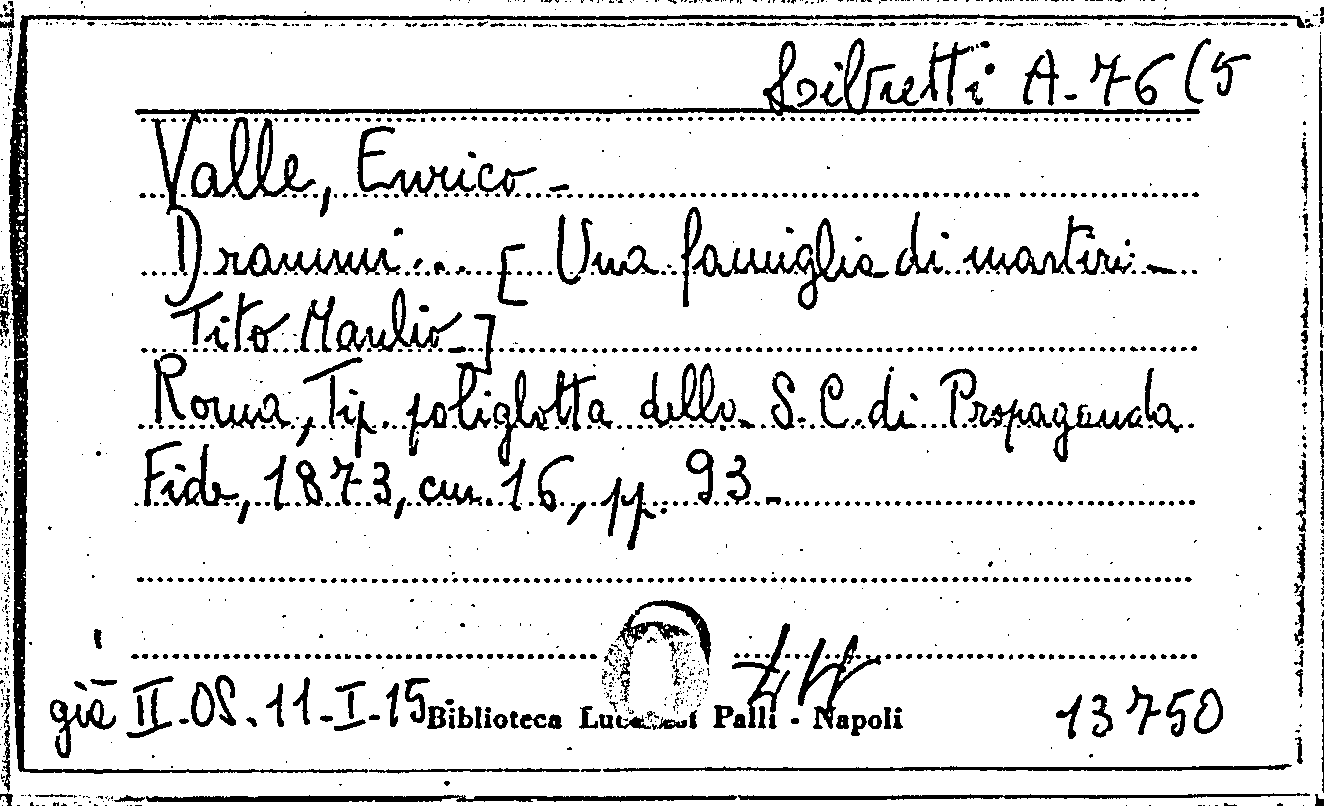 Libretti A-76 (5
Valle, Enrico -
Drammi... [Una famiglia di martiri -
Tito Manlio-]
Roma, Tip. poliglotta della S. C. di Propaganda
Fide, 1873, cm. 16, pp. 93 -
già II-OS.11-I-15 Biblioteca Lucchesi Palli - Napoli
13750